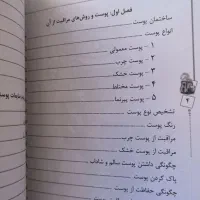 فصل اول: پوست و روش‌های مراقبت از آن
ساختمان پوست
انواع پوست
۱ - پوست معمولی
۲ - پوست چرب
۳ - پوست خشک
۴ - پوست مختلط
۵ - پوست پیرنما
تشخیص نوع پوست
رنگ پوست
مراقبت از پوست چرب
مراقبت از پوست خشک
چگونگی داشتن پوست سالم و شاداب
پاک کردن پوست
چگونگی حفاظت از پوست
۴